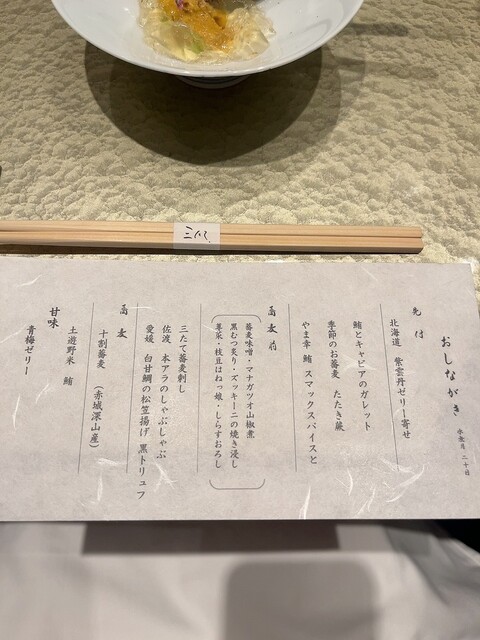 おしながき 水無月 二十日
先付
北海道 紫雲丹ゼリー寄せ
鮪とキャビアのガレット
季節のお蕎麦 たたき蕨
やま幸 鮪 スマックスパイスと
蕎麦前
蕎麦味噌・マナガツオ山椒煮
黒むつ炙り・ズッキーニの焼き浸し
蓴菜・枝豆はねっ娘・しらすおろし
三たて蕎麦刺し
佐渡 本アラのしゃぶしゃぶ
愛媛 白甘鯛の松笠揚げ 黒トリュフ
蕎麦
十割蕎麦 (赤城深山産)
土遊野米 鮪
甘味
青梅ゼリー